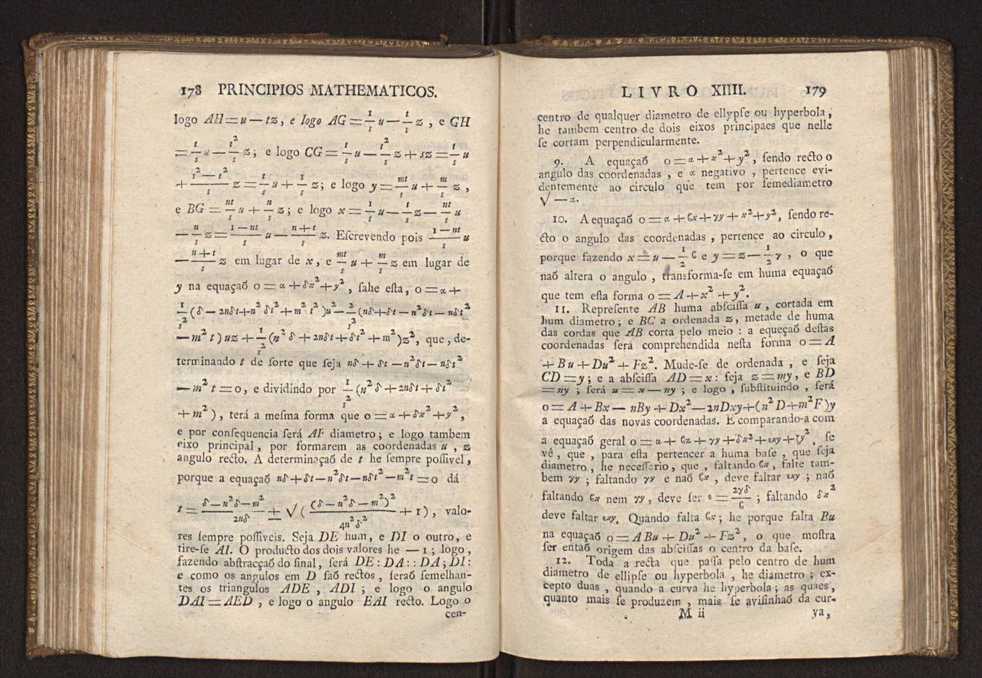 178 PRINCIPIOS MATHEMATICOS.
logo AH=u—tz, e logo AG=1/s u—t/s z, e GH
=t/s u—t²/s z; e logo CG=t/s u—t²/s z+sz=t/s u
+(s²—t²)/s z=t/s u+1/s z; e logo y=mt/s u+m/s z,
e BG=nt/s u+n/s z; e logo x=1/s u—t/s z—nt/s u
—n/s z=(1—nt)/s u—(n+t)/s z. Eſcrevendo pois (1—nt)/s u
—(n+t)/s z em lugar de x, e mt/s u+m/s z em lugar de
y na equaçaõ o=α+δx²+y², ſahe eſta, o=α+
1/s²(δ—2nδt+n²δt²+m²t²)u²—2/s²(nδ+δt—n²δt—nδt²
—m²t)uz+1/s²(n²δ+2nδt+δt²+m²)z², que, de-
terminando t de ſorte que ſeja nδ+δt—n²δt—nδt²
—m²t=o, e dividindo por 1/s²(n²δ+2nδt+δt²
+m²), terá a meſma forma que o=α+δx²+y²,
e por conſequencia ſerá AF diametro; e logo tambem
eixo principal, por formarem as coordenadas u, z
angulo recto. A determinaçaõ de t he ſempre poſſivel,
porque a equaçaõ nδ+δt—n²δt—nδt²—m²t=o dá
t=(δ—n²δ—m²)/2nδ ± √((δ—n²δ—m²)²/4n²δ²+1), valo-
res ſempre poſſiveis. Seja DE hum, e DI o outro, e
tire-ſe AI. O producto dos dois valores he —1; logo,
fazendo abſtracçaõ do ſinal, ſerá DE:DA::DA:DI:
e como os angulos em D ſaõ rectos, ſeraõ ſemelhan-
tes os triangulos ADE, ADI; e logo o angulo
DAI=AED, e logo o angulo EAI recto. Logo o
cen-
LIVRO XIIII. 179
centro de qualquer diametro de ellypſe ou hyperbola,
he tambem centro de dois eixos principaes que nelle
ſe cortam perpendicularmente.
9. A equaçaõ o=α+x²+y², ſendo recto o
angulo das coordenadas, e α negativo, pertence evi-
dentemente ao circulo que tem por ſemediametro
√—α.
10. A equaçaõ o=α+ϐx+γy+x²+y², ſendo re-
cto o angulo das coordenadas, pertence ao circulo,
porque fazendo x=u—1/2 ϐ e y=z—1/2 γ, o que
naõ altera o angulo, transforma-ſe em huma equaçaõ
que tem eſta forma o=A+x²+y².
11. Repreſente AB huma abſciſſa u, cortada em
hum diametro; e BC a ordenada z, metade de huma
das cordas que AB corta pelo meio: a equeçaõ deſtas
coordenadas ſerá comprehendida neſta forma o=A
+Bu+Du²+Fz². Mude-ſe de ordenada, e ſeja
CD=y; e a abſciſſa AD=x: ſeja z=my, e BD
=ny; ſerá u=x—ny; e logo, ſubſtituindo, ſerá
o=A+Bx—nBy+Dx²—2nDxy+(n²D+m²F)y²
a equaçaõ das novas coordenadas. E comparando-a com
a equaçaõ geral o=α+ϐx+γy+δx²+εxy+ζy², ſe
vê, que, para eſta pertencer a huma baſe, que ſeja
diametro, he neceſſerio, que, faltando ϐx, falte tam-
bem γy; faltando γy e naõ ϐx, deve faltar εxy; naõ
faltando ϐx nem γy, deve ſer ε=2γδ/ϐ; faltando δx²
deve faltar εxy. Quando falta ϐx; he porque falta Bu
na equaçaõ o=ABu+Du²+Fz², o que moſtra
ſer entaõ origem das abſciſſas o centro da baſe.
12. Toda a recta que paſſa pelo centro de hum
diametro de ellipſe ou hyperbola, he diametro; ex-
cepto duas, quando a curva he hyperbola; as quaes,
quanto mais ſe produzem, mais ſe aviſinhaõ da cur-
M ii ya,